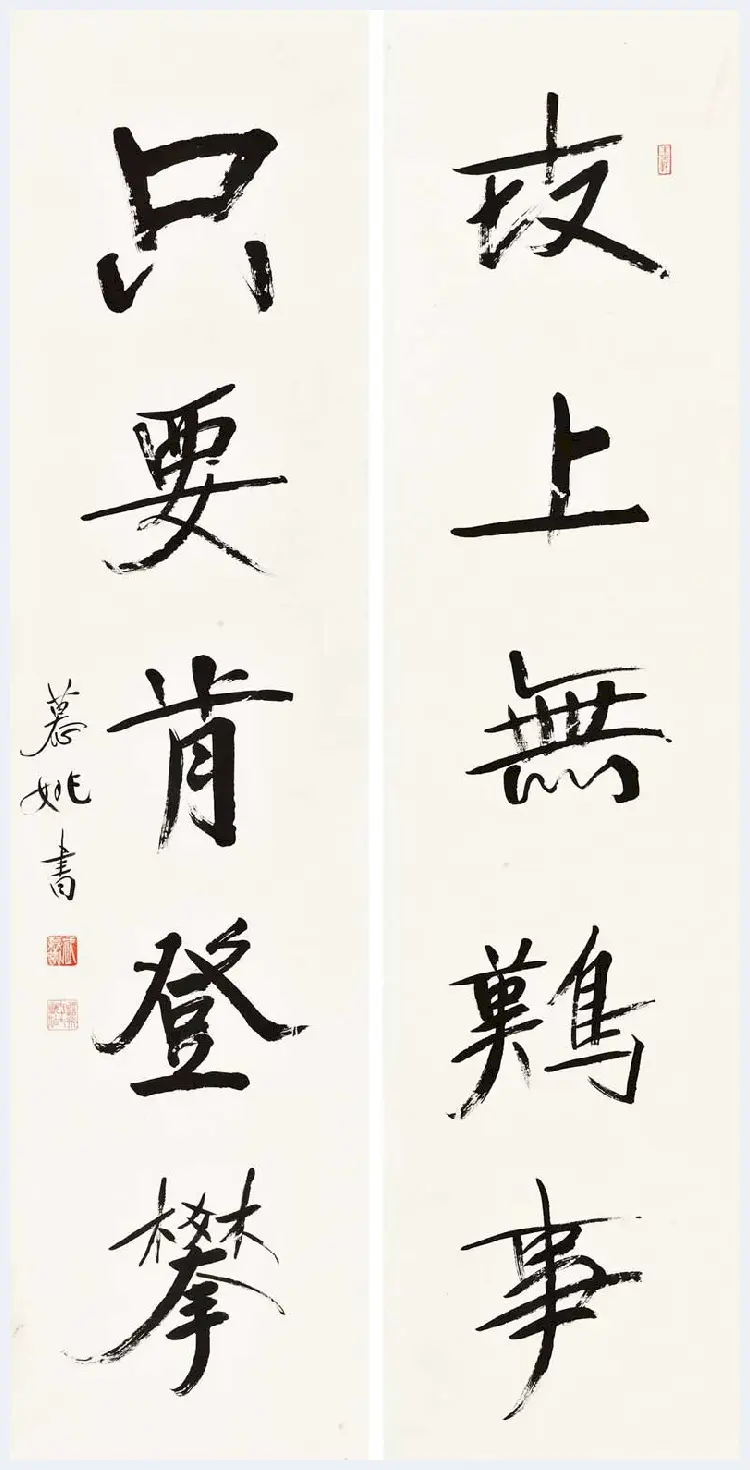 上無難事
只要肯登攀
慕姚書